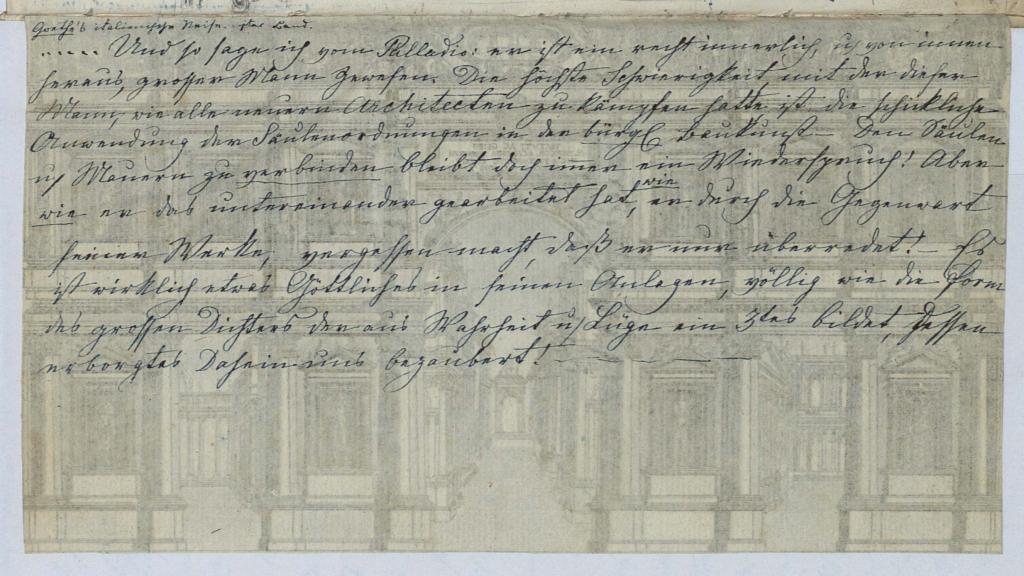 Goethe's italienische Reise. 1ster Band.
..... Und so sage ich vom Palladio: er ist ein recht innerlich, u von innen
heraus, grosser Mann gewesen. Die höchste Schwierigkeit mit der dieser
Mann, wie alle neuern Architecten zu kämpfen hatte ist die schickliche
Anwendung der Säulenordnungen in der bürgl Baukunst — Den Säulen
u Mauern zu verbinden bleibt doch imer ein Wiederspruch! Aber
wie er das untereinander gearbeitet hat, wie er durch die Gegenwart
seiner Werke, vergessen macht, daß er nur überredet! — Es
ist wirklich etwas Göttliches in seinen Anlagen, völlig wie die Form
des grossen Dichters der aus Wahrheit u Lüge ein 3tes bildet, dessen
erborgtes Dasein uns bezaubert! —